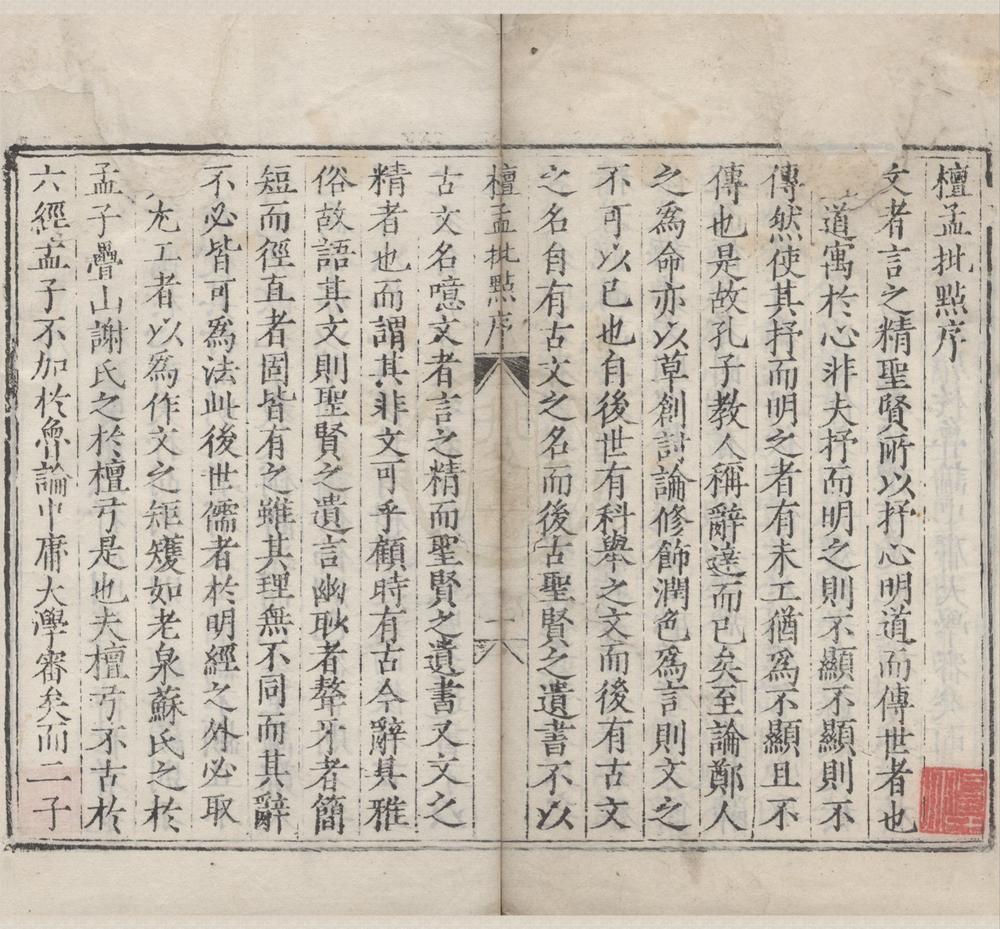 檀孟批點序
文者言之精聖賢所以抒心明道而傳世者也
道寓於心非夫抒而明之則不顯不顯則不
傳然使其抒而明之者有未工猶爲不顯且不
傳也是故孔子教人稱辭達而已矣至論鄭人
之爲命亦以草創討論修飾潤色爲言則文之
不可以已也自後世有科舉之文而後有古文
之名自有古文之名而後古聖賢之遺書不以
檀孟批點序
一
古文名噫文者言之精而聖賢之遺書又文之
精者也而謂其非文可乎顧時有古今辭具雅
俗故語其文則聖賢之遺言幽耿者聱牙者簡
短而徑直者固皆有之雖其理無不同而其辭
不必皆可爲法此後世儒者於明經之外必取
尤工者以爲作文之矩矱如老泉蘇氏之於
孟子疊山謝氏之於檀弓是也夫檀弓不古於
六經孟子不加於魯論中庸大學審矣而二子